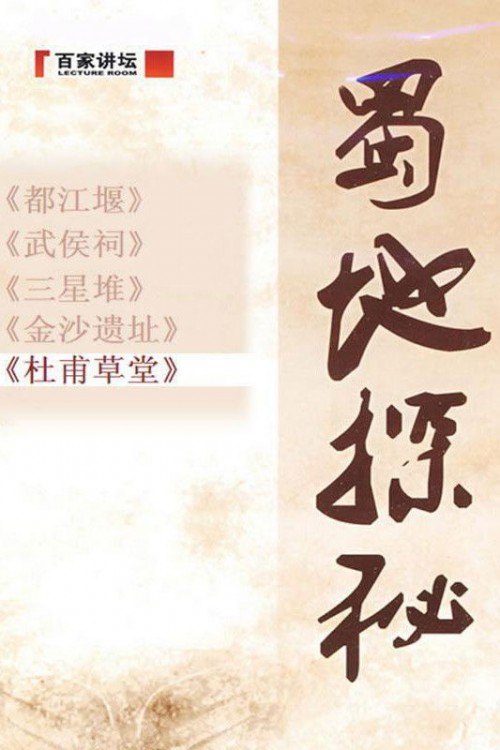 百家讲坛
LECTURE ROOM
蜀地探秘
《都江堰》
《武侯祠》
《三星堆》
《金沙遗址》
《杜甫草堂》